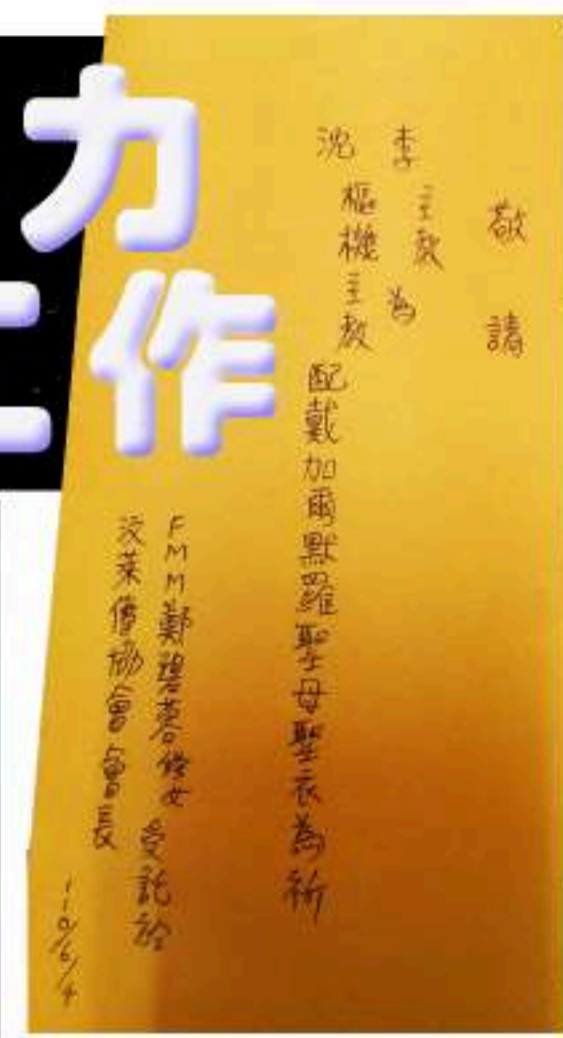 力
作
敬請
李主教為
沈樞機主教
配戴加爾默羅聖母聖衣為祈
FMM鄭碧蓉修女受託於
汶萊傳協會會長
110/6/4